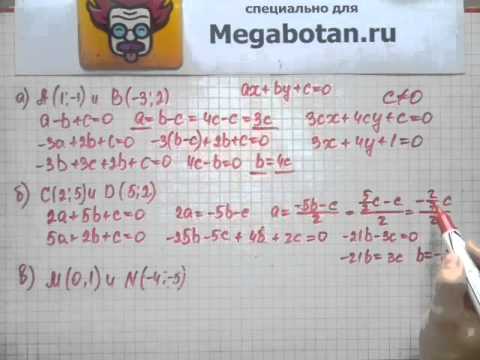 специально для
Megabotan.ru
а) A(1;-1) и B(-3;2) ax+by+c=0 c≠0
a-b+c=0 a=b-c=4c-c=3c 3cx+4cy+c=0
-3a+2b+c=0 -3(b-c)+2b+c=0 3x+4y+1=0
-3b+3c+2b+c=0 4c-b=0 b=4c
б) C(2;5) и D(5;2)
2a+5b+c=0 2a=-5b-c a=
5a+2b+c=0 -25b-5c+4b+2c=0 -21b-3c=0
-21b=3c b=-
в) M(0,1) и N(-4;-5)